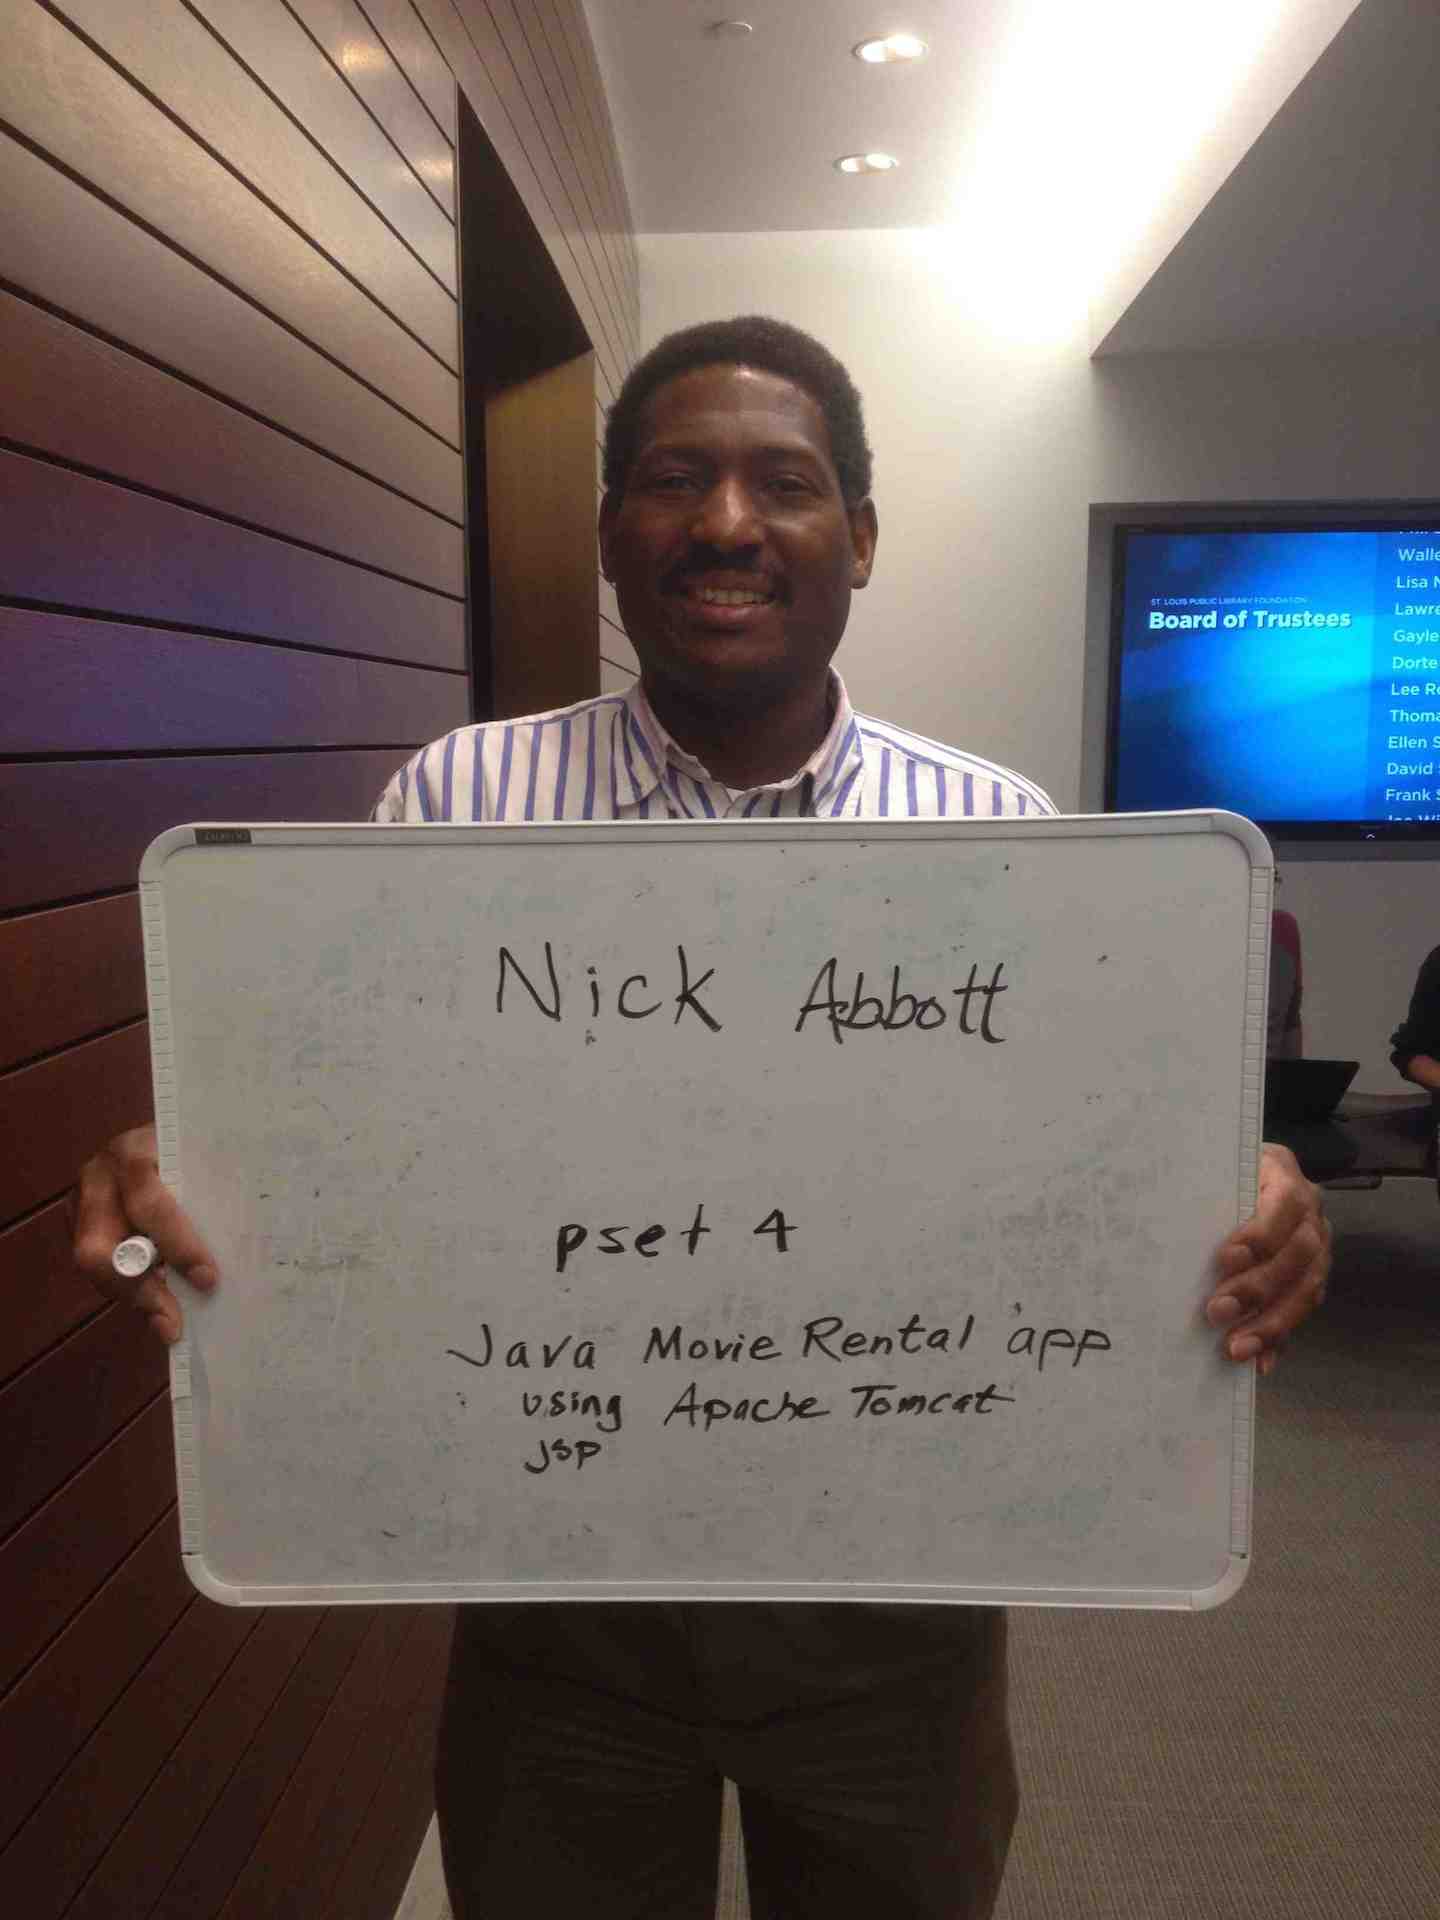 ST. LOUIS PUBLIC LIBRARY FOUNDATION
Board of Trustees
Walle
Lisa N
Lawre
Gayle
Dorte
Lee Ro
Thoma
Ellen S
David S
Frank S
Nick Abbott
pset 4
Java Movie Rental app
using Apache Tomcat
jsp